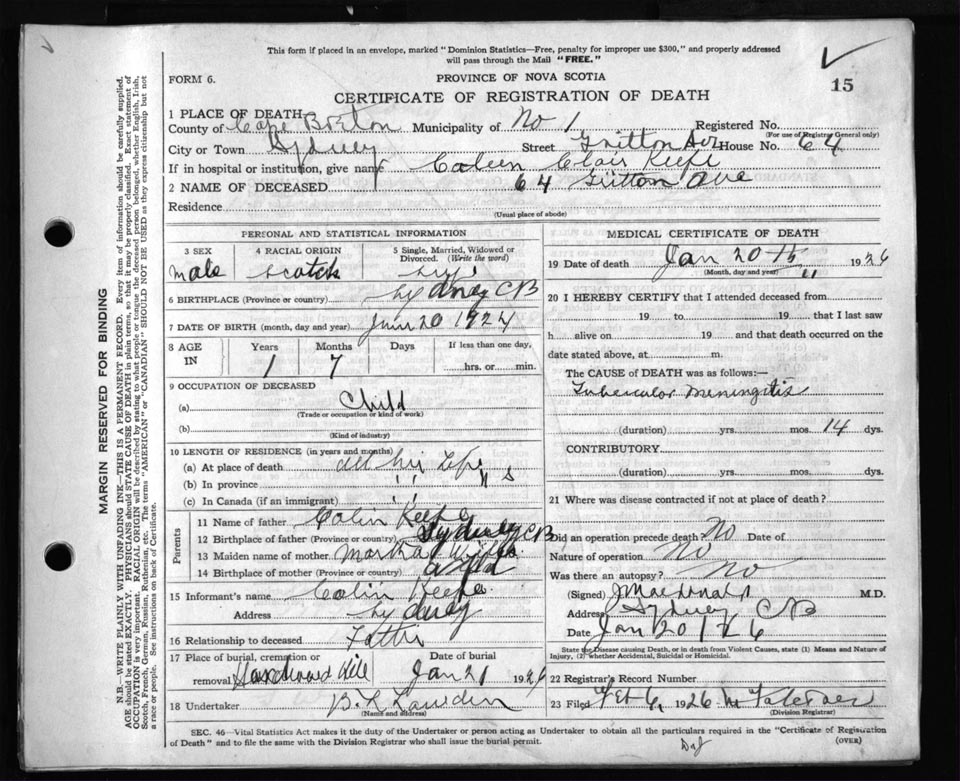 This form if placed in an envelope, marked "Dominion Statistics—Free, penalty for improper use $300," and properly addressed
will pass through the Mail "FREE."
FORM 6.
PROVINCE OF NOVA SCOTIA
15
CERTIFICATE OF REGISTRATION OF DEATH
1 PLACE OF DEATH
County of Cape Breton Municipality of No 1 Registered No.
(For use of Registrar General only)
City or Town Sydney Street Ave House No. 64
If in hospital or institution, give name Coleen Clair Keefe
2 NAME OF DECEASED 64 Ave
Residence
(Usual place of abode)
PERSONAL AND STATISTICAL INFORMATION
3 SEX 4 RACIAL ORIGIN 5 Single, Married, Widowed or Divorced. (Write the word)
Male Scotch
6 BIRTHPLACE (Province or country) Sydney CB
7 DATE OF BIRTH (month, day and year) June 20 1924
8 AGE IN Years Months Days If less than one day,
1 7 hrs. or min.
9 OCCUPATION OF DECEASED
(a) Child
(Trade or occupation or kind of work)
(b)
(Kind of industry)
10 LENGTH OF RESIDENCE (in years and months)
(a) At place of death all his Life
(b) In province " " "s
(c) In Canada (if an immigrant) " "
Parents
11 Name of father Colin Keefe
12 Birthplace of father (Province or country) Sydney CB
13 Maiden name of mother Martha
14 Birthplace of mother (Province or country)
15 Informant's name Colin Keefe
Address Sydney
16 Relationship to deceased Father
17 Place of burial, cremation or removal Hardwood Hill Date of burial Jan 21 1926
18 Undertaker
(Name and address)
MEDICAL CERTIFICATE OF DEATH
19 Date of death Jan 20th 1926
(Month, day and year)
20 I HEREBY CERTIFY that I attended deceased from
19 to 19 that I last saw
h alive on 19 and that death occurred on the
date stated above, at m.
The CAUSE of DEATH was as follows:—
Tubercular Meningitis
(duration) yrs. mos. 14 dys.
CONTRIBUTORY
(duration) yrs. mos. dys.
21 Where was disease contracted if not at place of death?
Did an operation precede death No Date of
Nature of operation No
Was there an autopsy? No
(Signed) J Macdonald M.D.
Address Sydney CB
Date Jan 20 / 26
State the Disease causing Death, or in death from Violent Causes, state (1) Means and Nature of
Injury, (2) whether Accidental, Suicidal or Homicidal.
22 Registrar's Record Number
23 Filed Feb 6, 1926
(Division Registrar)
SEC. 46—Vital Statistics Act makes it the duty of the Undertaker or person acting as Undertaker to obtain all the particulars required in the "Certificate of Registration
of Death" and to file the same with the Division Registrar who shall issue the burial permit.
(OVER)
MARGIN RESERVED FOR BINDING
N.B.—WRITE PLAINLY WITH UNFADING INK—THIS IS A PERMANENT RECORD. Every item of information should be carefully supplied.
AGE should be stated EXACTLY. PHYSICIANS should STATE CAUSE OF DEATH in plain terms, so that it may be properly classified. Exact statement of
OCCUPATION is very important. RACIAL ORIGIN will be described by stating to what people or tongue the deceased person belonged, whether English, Irish,
Scotch, French, German, Russian, Ruthenian, etc. The terms "AMERICAN" or "CANADIAN" SHOULD NOT BE USED as they express citizenship but not
a race or people. See instructions on back of Certificate.